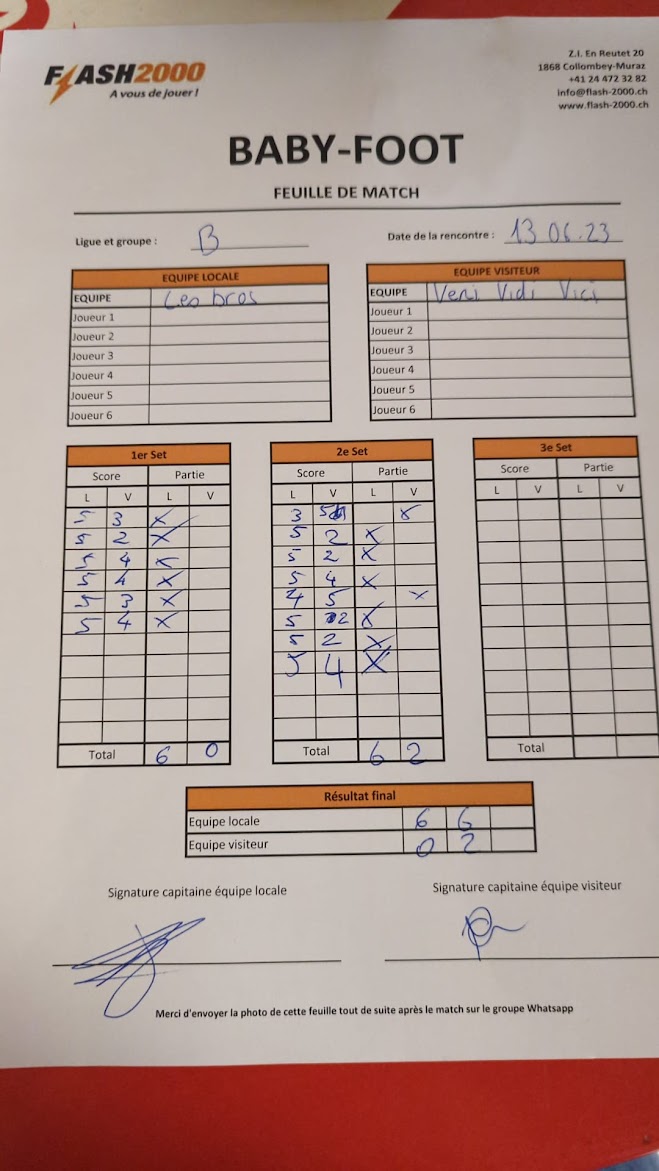 FLASH2000
A vous de jouer !
Z.I. En Reutet 20
1868 Collombey-Muraz
+41 24 472 32 82
info@flash-2000.ch
www.flash-2000.ch
BABY-FOOT
FEUILLE DE MATCH
Ligue et groupe : B
Date de la rencontre : 13 06.23
EQUIPE LOCALE
EQUIPE Les bros
Joueur 1
Joueur 2
Joueur 3
Joueur 4
Joueur 5
Joueur 6
EQUIPE VISITEUR
EQUIPE Veni Vidi Vici
Joueur 1
Joueur 2
Joueur 3
Joueur 4
Joueur 5
Joueur 6
1er Set
Score Partie
L V L V
5 3 X
5 2 X
5 4 X
5 4 X
5 3 X
5 4 X
Total 6 0
2e Set
Score Partie
L V L V
3 5 X
5 2 X
5 2 X
5 4 X
4 5 X
5 2 X
5 2 X
5 4 X
Total 6 2
3e Set
Score Partie
L V L V
Total
Résultat final
Equipe locale 6 6
Equipe visiteur 0 2
Signature capitaine équipe locale
Signature capitaine équipe visiteur
Merci d'envoyer la photo de cette feuille tout de suite après le match sur le groupe Whatsapp